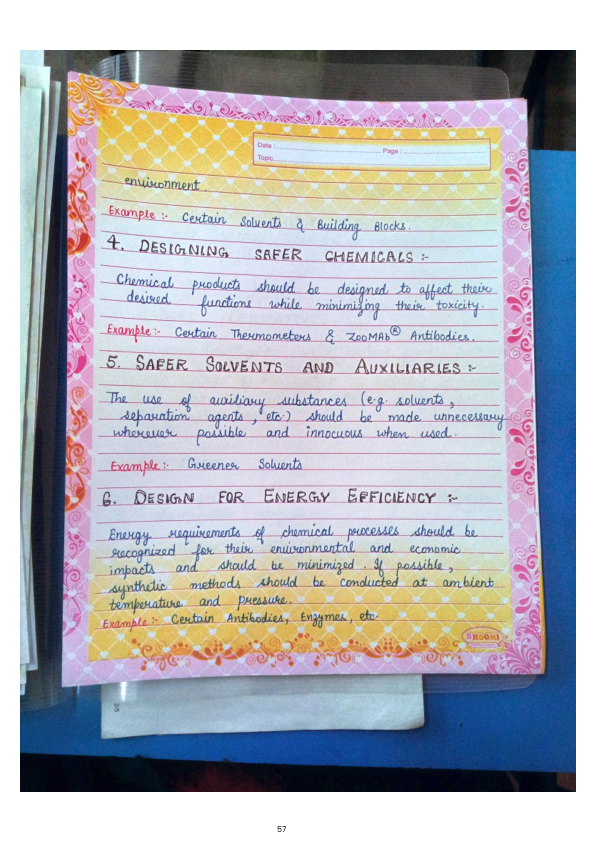 Date :
Page :
Topic
environment
Example :- Certain Solvents & Building Blocks.
4. DESIGNING SAFER CHEMICALS :-
Chemical products should be designed to affect their
desired functions while minimizing their toxicity.
Example :- Certain Thermometers & ZooMAb® Antibodies.
5. SAFER SOLVENTS AND AUXILIARIES :-
The use of auxiliary substances (e.g. solvents,
separation agents, etc.) should be made unnecessary
wherever possible and innocuous when used.
Example :- Greener Solvents
6. DESIGN FOR ENERGY EFFICIENCY :-
Energy requirements of chemical processes should be
recognized for their environmental and economic
impacts and should be minimized. If possible,
synthetic methods should be conducted at ambient
temperature and pressure.
Example :- Certain Antibodies, Enzymes, etc.
BHOOMI
57